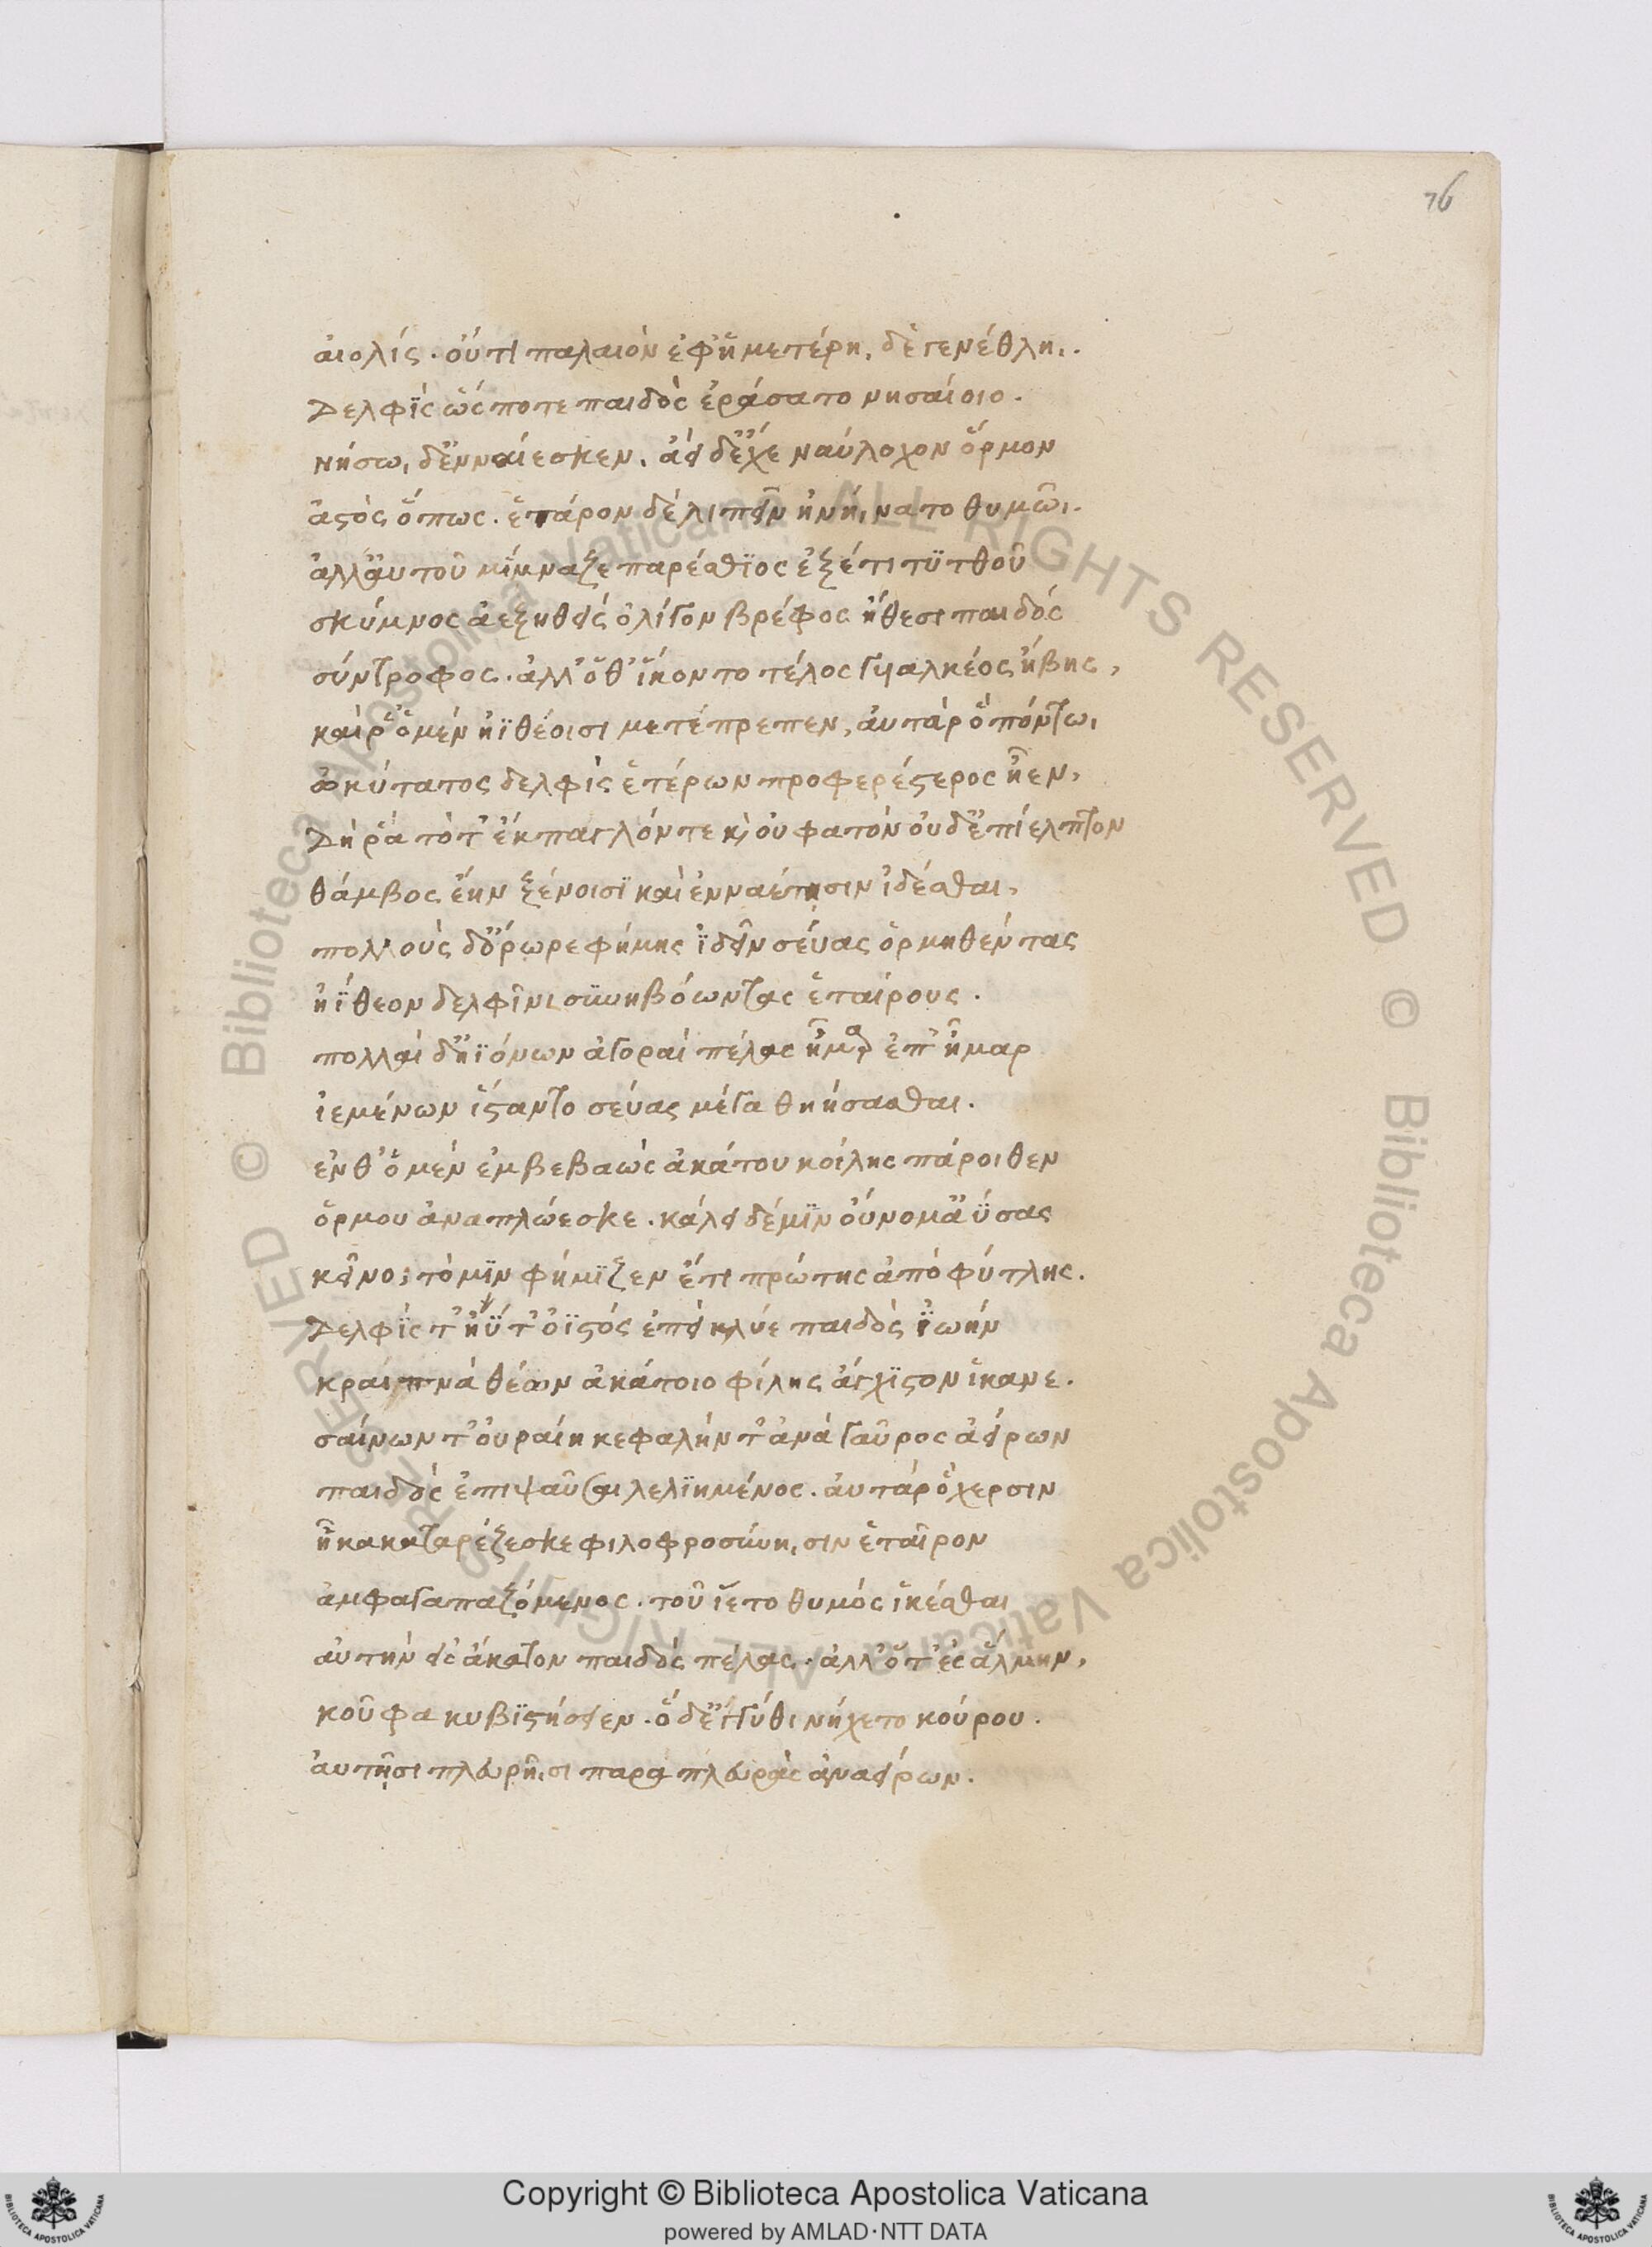 76
αἰολίς. οὔτι παλαιὸν ἐφ' ἡμετέρηι δὲ γενέθληι.
Δελφὶς ὥς ποτε παιδὸς ἐράσατο νησαίοιο.
νήσωι δ' ἐνναίεσκεν. ἀεὶ δ' ἔχε ναύλοχον ὅρμον
ἀστὸς ὅπως. ἕταρον δὲ λιπεῖν ἠνήινατο θυμῶι.
ἀλλ' αὐτοῦ μίμναζε παρέσθϊος ἐξέτι τϋτθοῦ
σκύμνος ἀεξηθεὶς ὀλίγον βρέφος ἤθεσι παιδός
σύντροφος. ἀλλ' ὅθ' ἵκοντο τέλος γυαλκέος ἥβης,
καί ῥ' ὁ μὲν ἠϊθέοισι μετέπρεπεν, αὐτὰρ ὁ πόντωι
ὠκύτατος δελφὶς ἑτέρων προφερέστερος ἦεν,
Δή ῥα τότ' ἔκπαγλόν τε καὶ οὐ φατὸν οὐδ' ἐπίελπτον
θάμβος ἔην ξένοισϊ καὶ ἐνναέτησιν ἰδέσθαι,
πολλοὺς δ' ὄρωρε φήμης ϊδεῖν σέυας ὁρμηθέντας
ἠΐθεον δελφῖνι συνηβόωντας ἑταίρους.
πολλαὶ δ' ἠϊόνων ἀγοραὶ πέλας ἦμαρ ἐπ' ἦμαρ
ἱεμένων ἵσταντο σέυας μέγα θηήσασθαι.
ἔνθ' ὁ μὲν ἐμβεβαὼς ἀκάτου κοίλης πάροιθεν
ὅρμου ἀναπλώεσκε. κάλει δέ μϊν οὔνομ' ἀΰσας
κεῖνο; τό μϊν φήμϊξεν ἔτι πρώτης ἀπὸ φύτλης.
Δελφὶς τ' ἠΰτ' ὀϊστός ἐπεὶ κλύε παιδὸς ϊωήν
κραιπνὰ θέων ἀκάτοιο φίλης ἄγχϊστον ἵκανε.
σαίνων τ' οὐραίη κεφαλήν τ' ἀνὰ γαῦρος ἀείρων
παιδὸς ἐπιψαῦσαι λελϊημένος. αὐτὰρ ὁ χερσιν
ἦκα καταρέζεσκε φιλοφροσύνηισιν ἑταῖρον
ἀμφαγαπαζόμενος. τοῦ ἵετο θυμὸς ἱκέσθαι
αὐτὴν εἰς ἄκατον παιδὸς πέλας. ἀλλ' ὅτ' ἐς ἅλμην,
κοῦφα κυβϊστήσειεν. ὁ δ' ἐγγύθι νήχετο κούρου.
αὐτῆσι πλευρῆισι παρὰ πλευρὰς ἀναείρων.
Copyright © Biblioteca Apostolica Vaticana
powered by AMLAD·NTT DATA